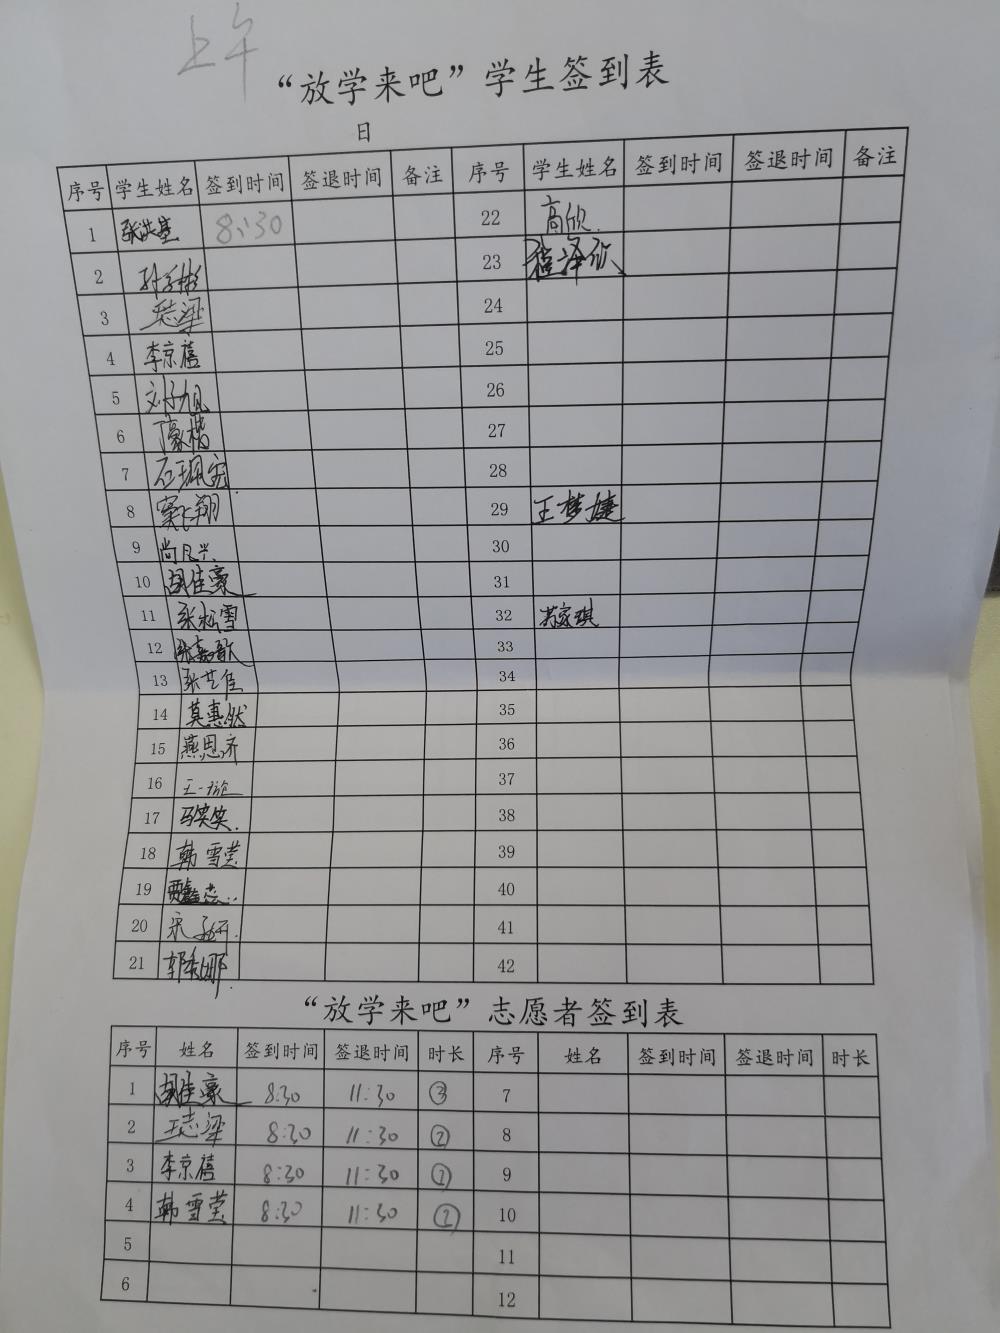 上午
“放学来吧”学生签到表
日
序号 学生姓名 签到时间 签退时间 备注 序号 学生姓名 签到时间 签退时间 备注
1 张洪基 8:30 22 高欣.
2 23 程泽欣
3 王志梁 24
4 李京蓓 25
5 刘子旭 26
6 27
7 石珮宏 28
8 窦飞翔 29 王梦婕
9 尚凡兴. 30
10 胡佳豪 31
11 张松雪 32 苏家琪
12 张嘉歌 33
13 张艺佳 34
14 莫惠然 35
15 燕思济 36
16 37
17 马笑笑. 38
18 韩雪莹 39
19 40
20 41
21 42
“放学来吧”志愿者签到表
序号 姓名 签到时间 签退时间 时长 序号 姓名 签到时间 签退时间 时长
1 胡佳豪 8:30 11:30 ③ 7
2 王志梁 8:30 11:30 ② 8
3 李京蓓 8:30 11:30 9
4 韩雪莹 8:30 11:30 ② 10
5 11
6 12